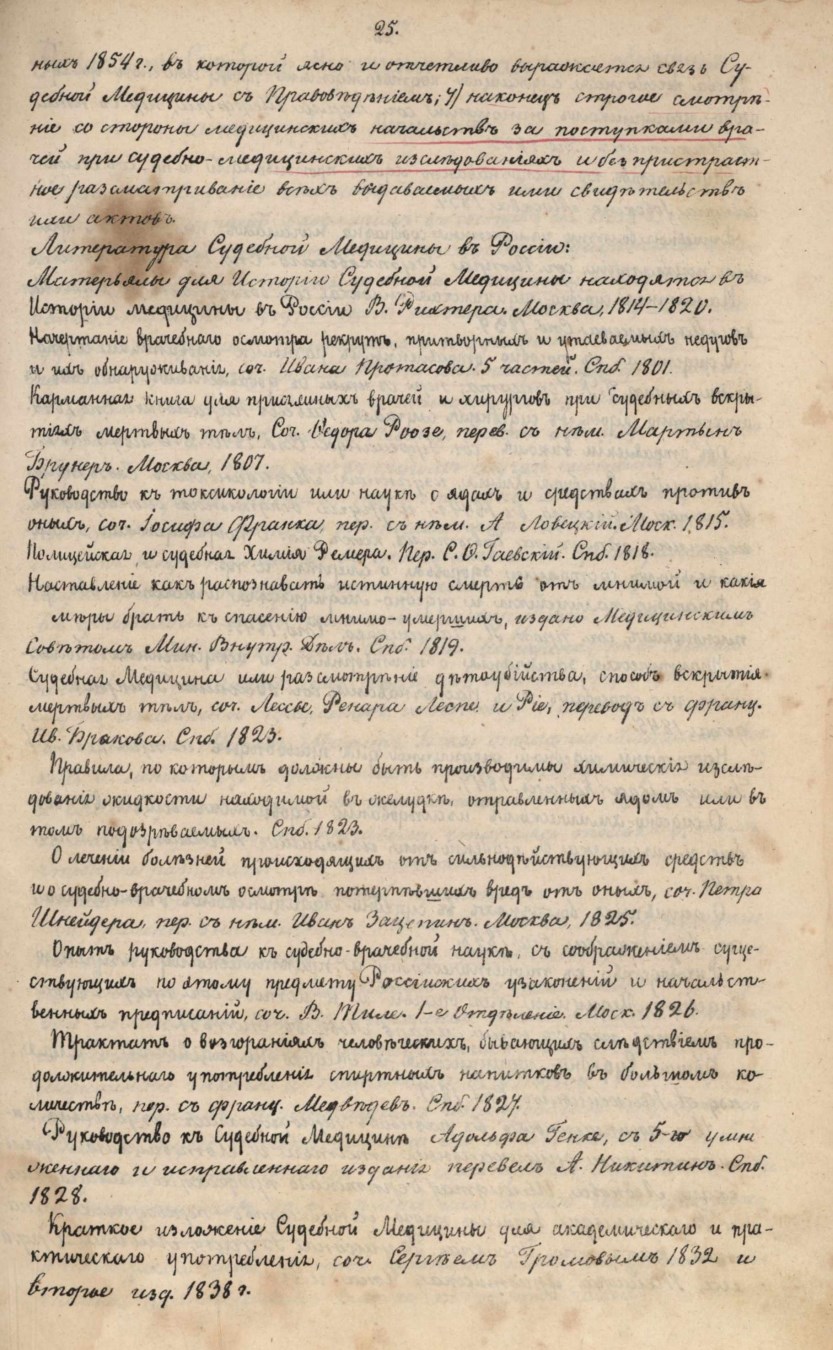 25.
ныхъ 1854 г., въ которой ясно и отчетливо выражается связь Су-
дебной Медицины съ Правовѣдѣніемъ; 7) наконецъ строгое смотрѣ-
ніе со стороны медицинскихъ начальствъ за поступками вра-
чей при судебно-медицинскихъ изслѣдованіяхъ и безпристраст-
ное разсматриваніе всѣхъ выдаваемыхъ ими свидѣтельствъ
или актовъ.
Литература Судебной Медицины въ Россіи:
Матерьялы для Исторіи Судебной Медицины находятся въ
Исторіи медицины въ Россіи В. Рихтера. Москва, 1814-1820.
Начертаніе врачебнаго осмотра рекрутъ, притворныхъ и утаеваемыхъ недуговъ
и ихъ обнаруживанія, соч. Ивана Протасова. 5 частей. Спб. 1801.
Карманная книга для присяжныхъ врачей и хирурговъ при судебныхъ вскры-
тіяхъ мертвыхъ тѣлъ, Соч. Ѳедора Роозе, перев. съ нѣм. Мартынъ
Брунеръ. Москва, 1807.
Руководство къ токсикологіи или наукѣ о ядахъ и средствахъ противъ
оныхъ, соч. Іосифа Франка, пер. съ нѣм. А Ловецкій. Моск. 1815.
Полицейская и судебная Химія Ремера. Пер. С. Ѳ. Гаевскій. Спб. 1818.
Наставленіе какъ распознавать истинную смерть отъ мнимой и какія
мѣры брать къ спасенію мнимо-умершихъ, издано Медицинскимъ
Совѣтомъ Мин. Внутр. Дѣлъ. Спб. 1819.
Судебная Медицина или разсмотрѣніе дѣтоубійства, способъ вскрытія
мертвыхъ тѣлъ, соч. Лессье, Ренара Леспе и Ріе, переводъ съ франц.
Ив. Бракова. Спб. 1823.
Правила, по которымъ должны быть производимы химическія изслѣ-
дованія жидкости находимой въ желудкѣ, отравленныхъ ядомъ или въ
томъ подозрѣваемыхъ. Спб. 1823.
О леченіи болѣзней происходящихъ отъ сильнодѣйствующихъ средствъ
и о судебно-врачебномъ осмотрѣ потерпѣвшихъ вредъ отъ оныхъ, соч. Петра
Шнейдера, пер. съ нѣм. Иванъ Зацепинъ. Москва, 1825.
Опытъ руководства къ судебно-врачебной наукѣ, съ соображеніемъ суще-
ствующихъ по этому предмету Россійскихъ узаконеній и начальст-
венныхъ предписаній, соч. В. Тиле. 1-е Отдѣленіе. Моск. 1826.
Трактатъ о возгораніяхъ человѣческихъ, бывающихъ слѣдствіемъ про-
должительнаго употребленія спиртныхъ напитковъ въ большомъ ко-
личествѣ, пер. съ франц. Медвѣдевъ. Спб. 1827.
Руководство къ Судебной Медицинѣ Адольфа Генке, съ 5-го умно
женнаго и исправленнаго изданія перевелъ А. Никитинъ. Спб.
1828.
Краткое изложеніе Судебной Медицины для академическаго и пра-
ктическаго употребленія, соч. Сергѣемъ Громовымъ 1832 и
второе изд. 1838 г.